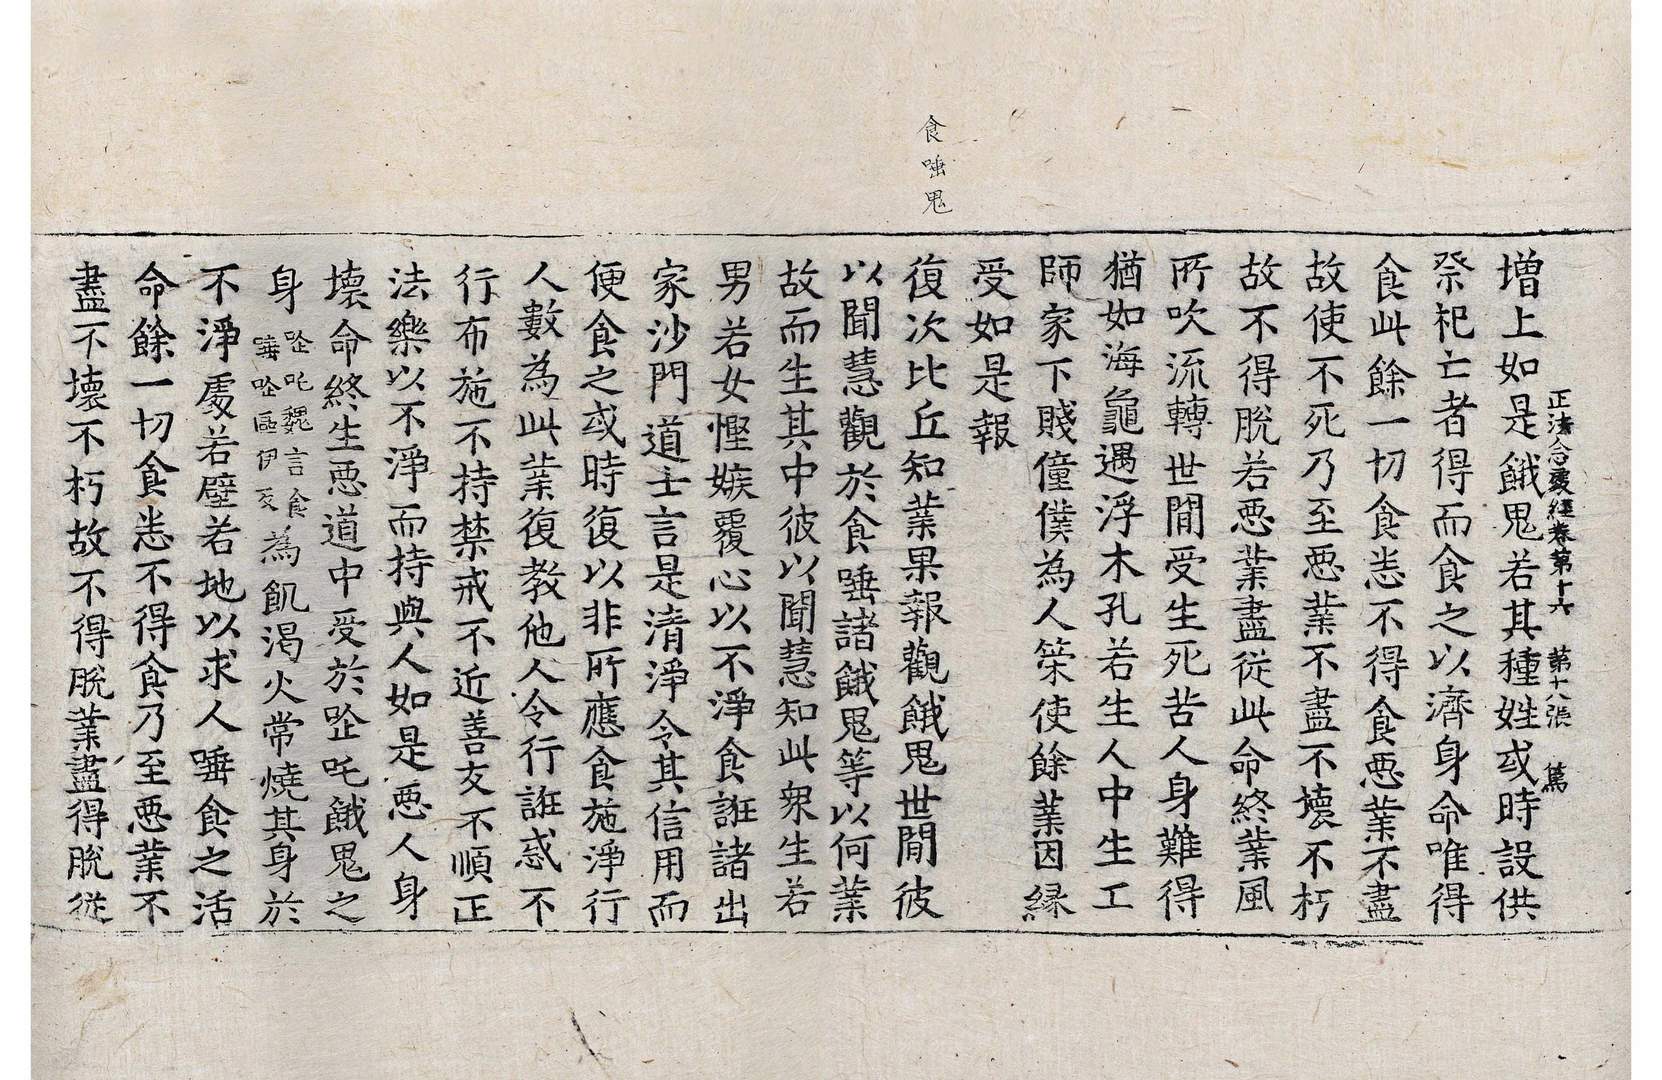 正法念處經卷第十六 第十八張 篤
增上如是餓鬼若其種姓或時設供
祭祀亡者得而食之以濟身命唯得
食此餘一切食恙不得食惡業不盡
故使不死乃至惡業不盡不壞不朽
故不得脫若惡業盡從此命終業風
所吹流轉世間受生死苦人身難得
猶如海龜遇浮木孔若生人中生工
師家下賤僮僕為人策使餘業因緣
受如是報
食唾鬼
復次比丘知業果報觀餓鬼世間彼
以聞慧觀於食唾諸餓鬼等以何業
故而生其中彼以聞慧知此眾生若
男若女慳嫉覆心以不淨食誑諸出
家沙門道士言是清淨令其信用而
便食之或時復以非所應食施淨行
人數為此業復教他人令行誑惑不
行布施不持禁戒不近善友不順正
法樂以不淨而持與人如是惡人身
壞命終生惡道中受於㖶吒餓鬼之
身㖶吒魏言食唾㖶區伊反為飢渴火常燒其身於
不淨處若壁若地以求人唾食之活
命餘一切食恙不得食乃至惡業不
盡不壞不朽故不得脫業盡得脫從